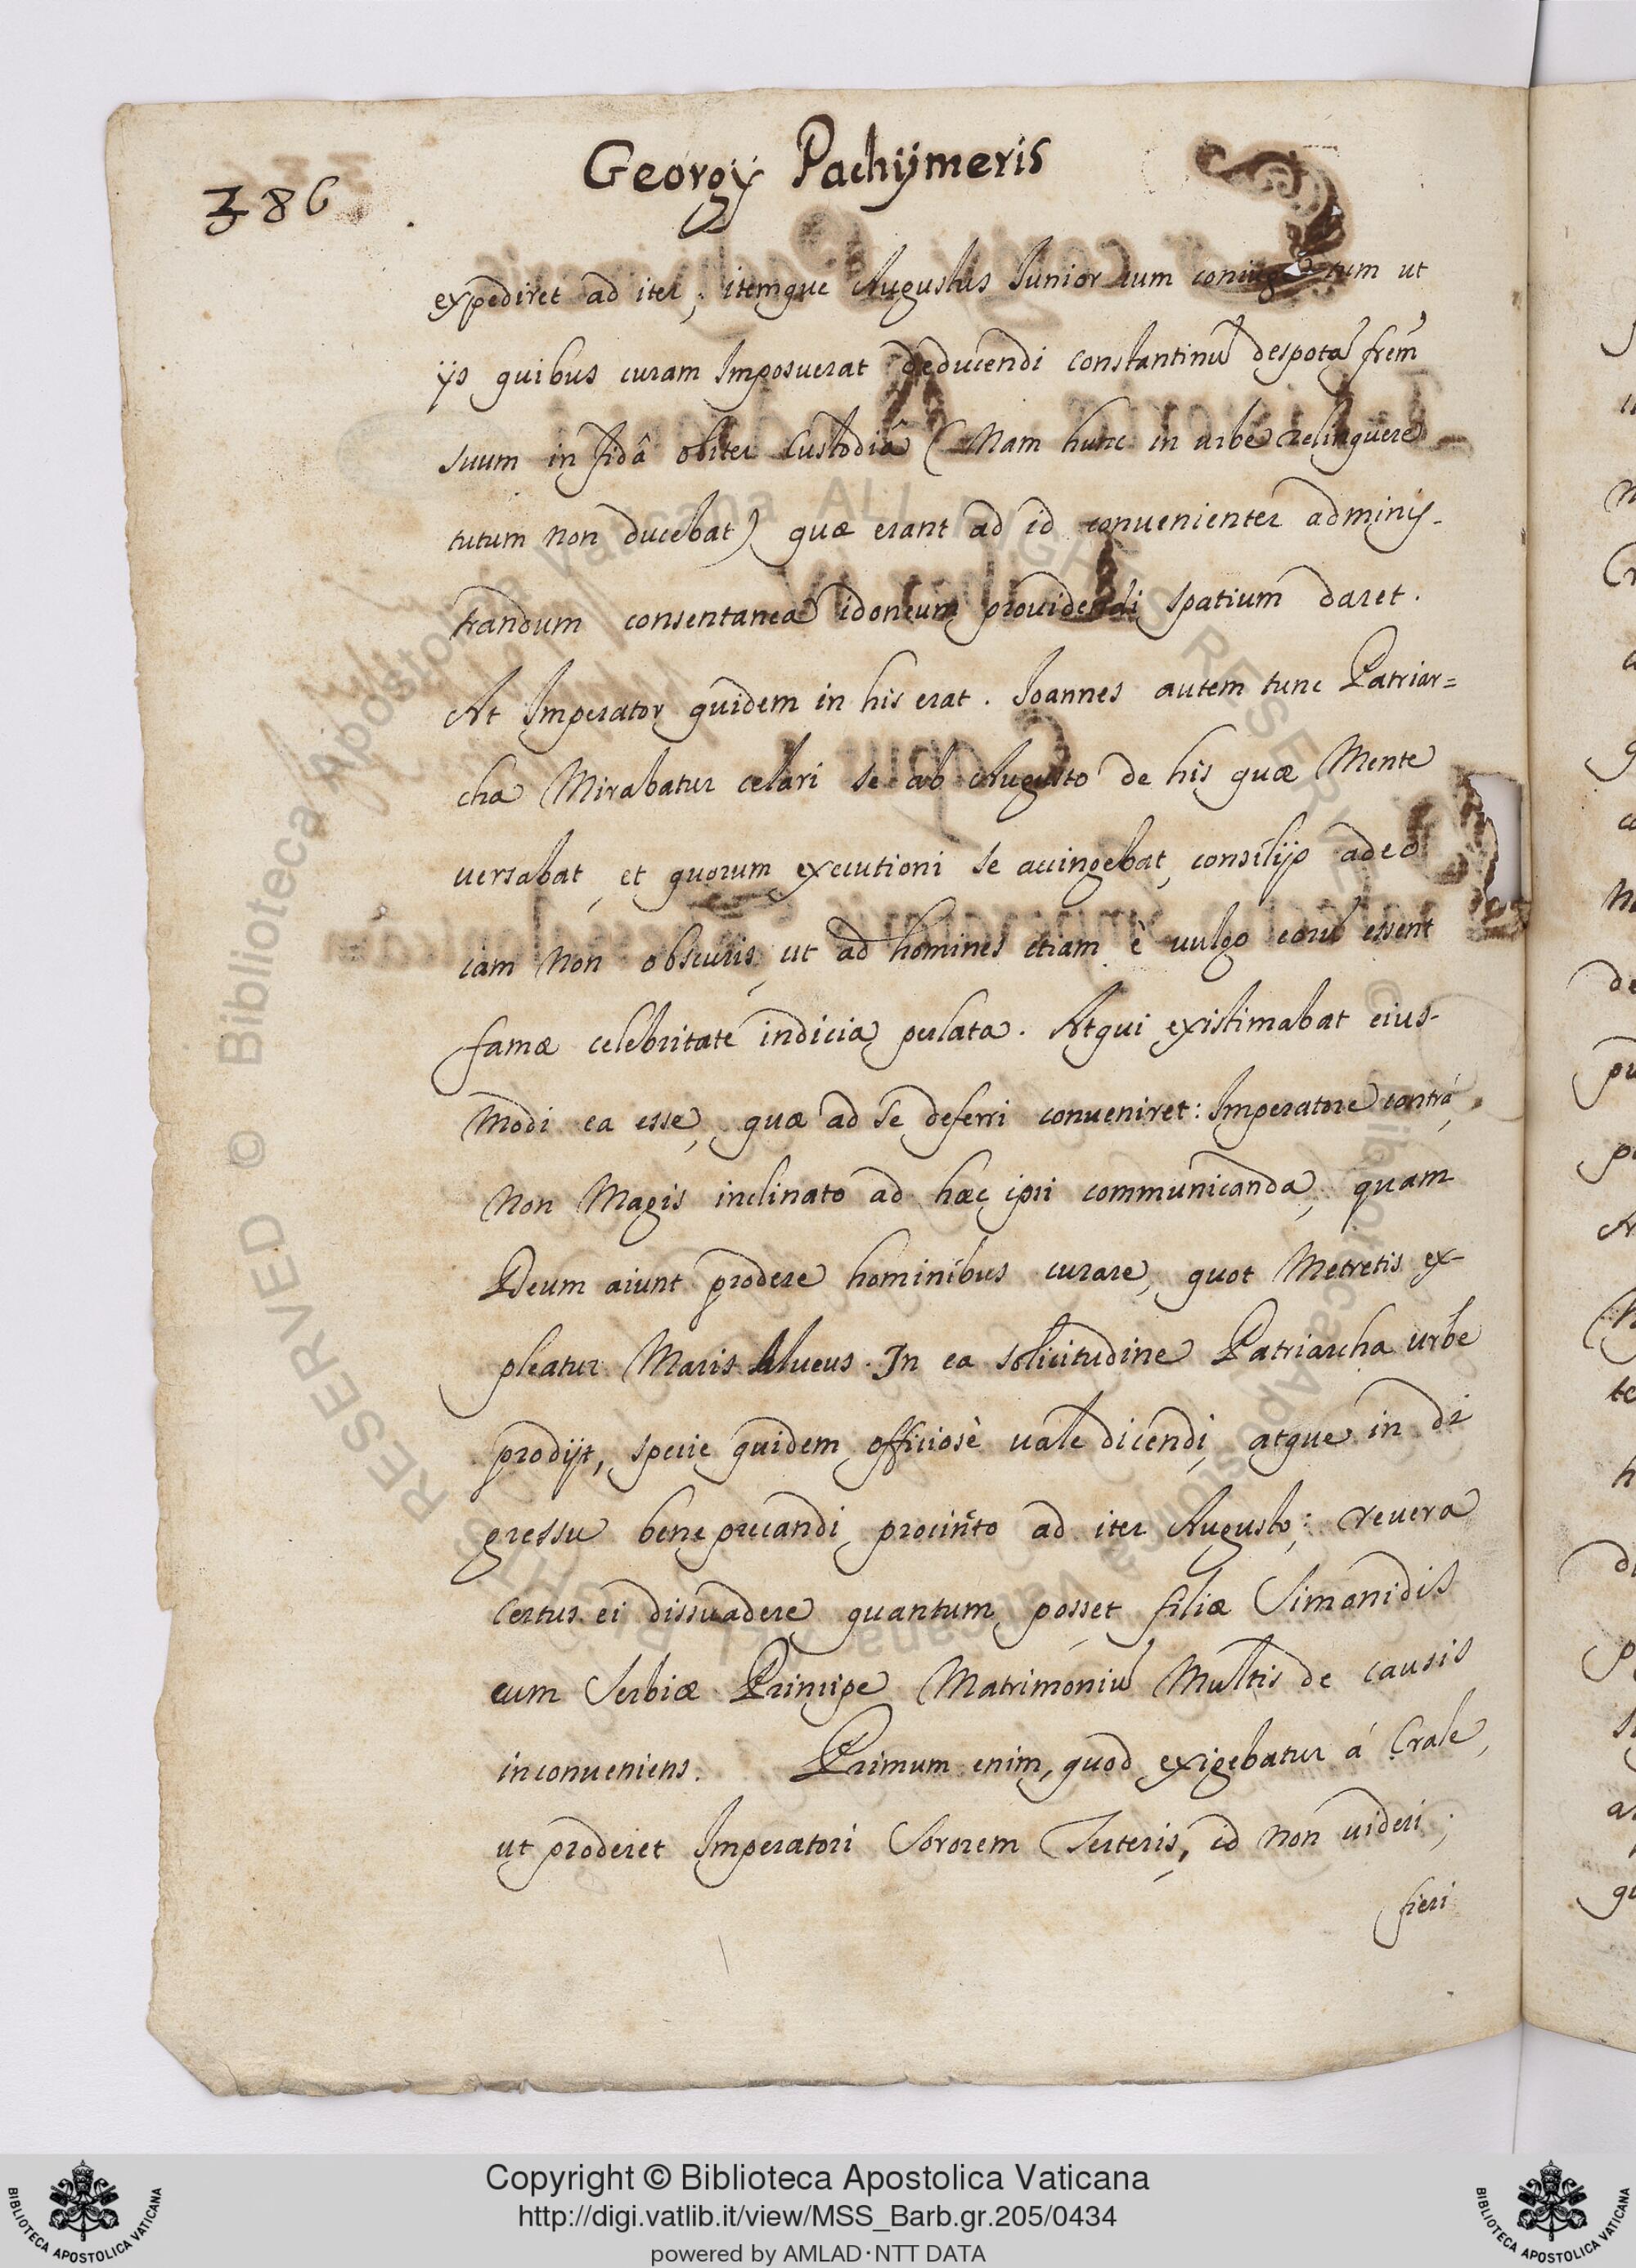 386
Georgij Pachijmeris
expediret ad iter, itemque Augustus Iunior cum coniuge tum ut
ijs quibus curam Imposuerat deducendi constantinū despotā frēm
suum in fidâ obiter Custodiâ (Nam hunc in urbe relinquere
tutum non ducebat) quæ erant ad id convenienter adminis-
trandum consentanea idoneum providendi spatium daret.
At Imperator quidem in his erat. Ioannes autem tunc Patriar=
cha Mirabatur celari se ab Augusto de his quæ Mente
versabat, et quorum executioni se accingebat, consilijs adeo
iam non obscuris, ut ad homines etiam è vulgo eorū essent
famæ celebritate indicia perlata. Atqui existimabat eius-
Modi ea esse, quæ ad se deferri conveniret: Imperatore contrà,
Non Magis inclinato ad hæc ipsi communicanda, quam
Deum aiunt prodere hominibus curare, quot Metretis ex-
pleatur Maris Alveus. In ea solicitudine Patriarcha urbe
prodijt, specie quidem officiosè vale dicendi, atque in di
gressu bene precandi procincto ad iter Augusto; revera
Certus ei dissuadere quantum posset filiæ Simonidis
cum Serbiæ Principe Matrimoniū Multis de causis
inconveniens. Primum enim, quod exigebatur á Crale,
ut proderet Imperatori Sororem Terteris, id non videri
fieri
Copyright © Biblioteca Apostolica Vaticana
http://digi.vatlib.it/view/MSS_Barb.gr.205/0434
powered by AMLAD·NTT DATA
BIBLIOTECA APOSTOLICA VATICANA
BIBLIOTECA APOSTOLICA VATICANA